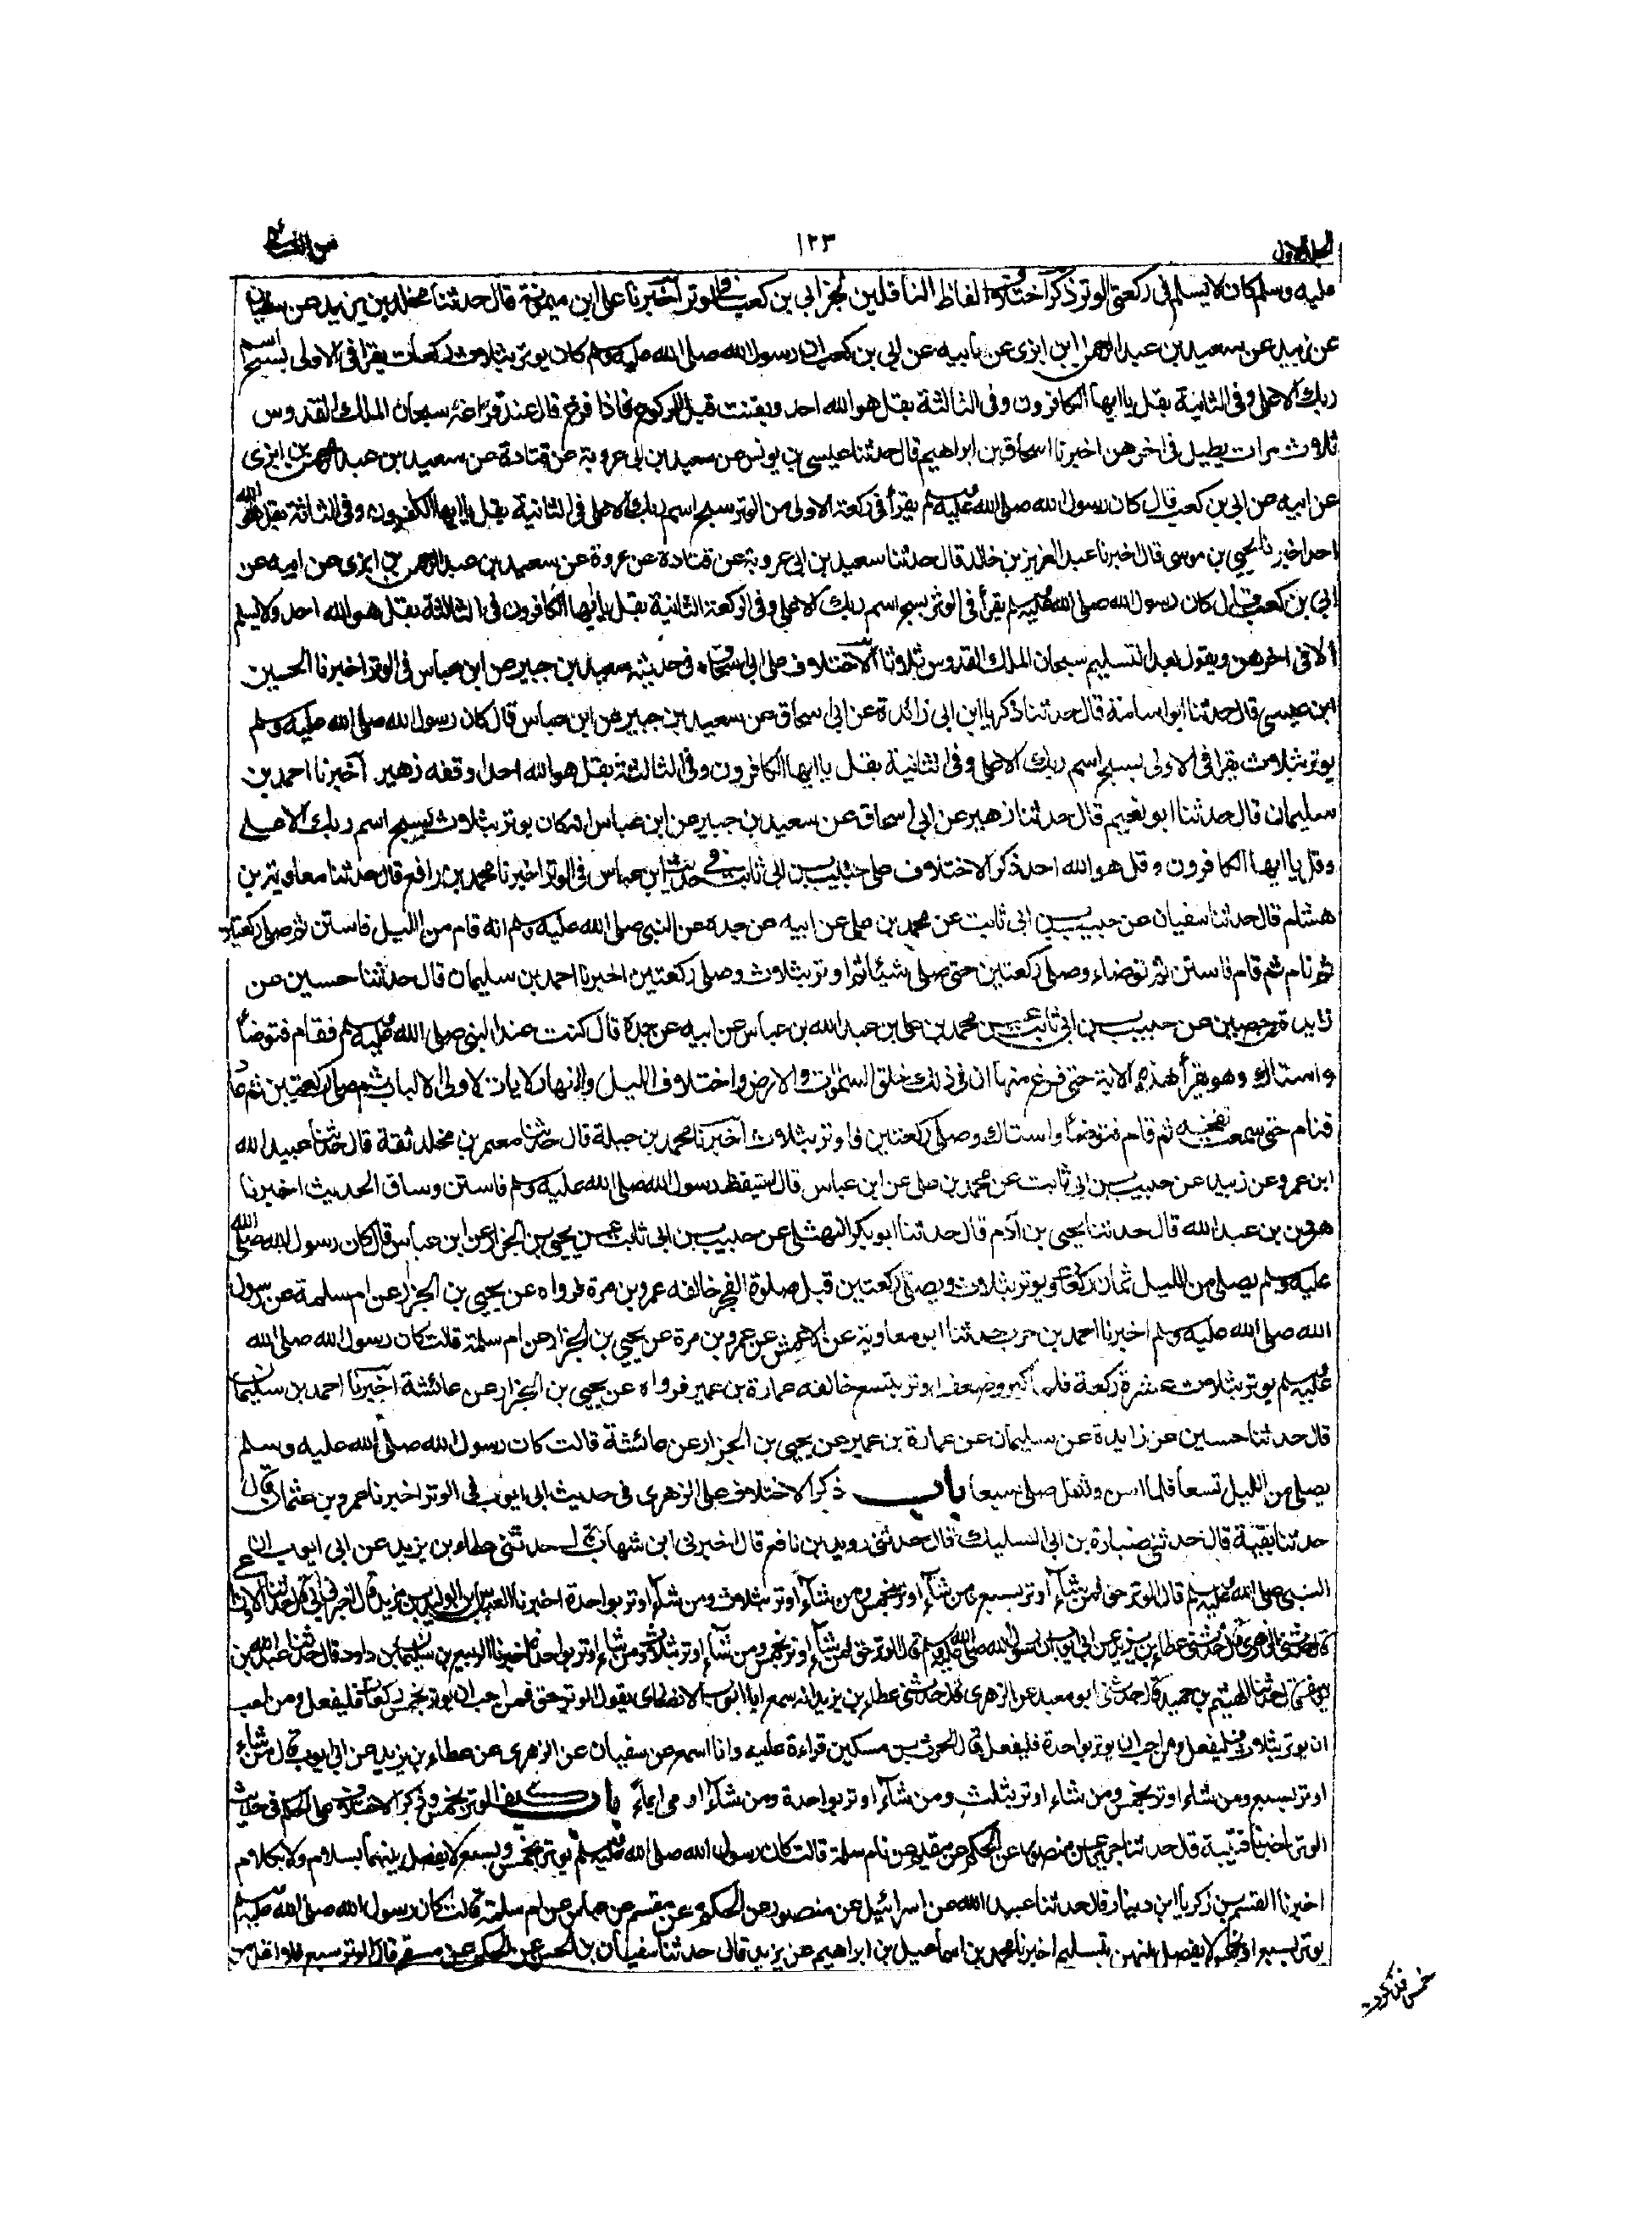 الجلد الاول
١٢٣
من النسائي
عليه وسلم كان لا يسلم في ركعتي الوتر ذكر اختلاف الفاظ الناقلين لخبر ابي بن كعب في الوتر اخبرنا علي ابن ميمون قال حدثنا مخلد بن يزيد عن سفيان
عن زبيد عن سعيد بن عبد الرحمن ابن ابزى عن ابيه عن ابي بن كعب ان رسول الله صلى الله عليه وسلم كان يوتر بثلاث ركعات يقرا في الاولى بسبح اسم
ربك الاعلى وفي الثانية بقل يا ايها الكافرون وفي الثالثة بقل هو الله احد ويقنت قبل الركوع فاذا فرغ قال عند فراغه سبحان الملك القدوس
ثلاث مرات يطيل في اخرهن اخبرنا اسحاق بن ابراهيم قال حدثنا عيسى بن يونس عن سعيد بن ابي عروبة عن قتادة عن سعيد بن عبد الرحمن بن ابزى
عن ابيه عن ابي بن كعب قال كان رسول الله صلى الله عليه وسلم يقرأ في ركعة الاولى من الوتر سبح اسم ربك الاعلى في الثانية بقل يا ايها الكفرون وفي الثالثة بقل هو الله
احد اخبرنا يحيى بن موسى قال اخبرنا عبد العزيز بن خالد قال حدثنا سعيد بن ابي عروبة عن قتادة عن عروة عن سعيد بن عبد الرحمن بن ابزى عن ابيه عن
ابي بن كعب قال كان رسول الله صلى الله عليه وسلم يقرأ في الوتر بسبح اسم ربك الاعلى وفي الركعة الثانية بقل يا ايها الكافرون في الثالثة بقل هو الله احد ولا يسلم
الا في اخرهن ويقول بعد التسليم سبحان الملك القدوس ثلاثا الاختلاف على ابي اسحاق في حديث سعيد بن جبير عن ابن عباس في الوتر اخبرنا الحسين
ابن عيسى قال حدثنا ابو اسامة قال حدثنا ذكريا ابن ابي زائدة عن ابي اسحاق عن سعيد بن جبير عن ابن عباس قال كان رسول الله صلى الله عليه وسلم
يوتر بثلاث يقرا في الاولى بسبح اسم ربك الاعلى وفي الثانية بقل يا ايها الكافرون وفي الثالثة بقل هو الله احد اوقفه زهير اخبرنا احمد بن
سليمان قال حدثنا ابو نعيم قال حدثنا زهير عن ابي اسحاق عن سعيد بن جبير عن ابن عباس انه كان يوتر بثلاث بسبح اسم ربك الاعلى
وقل يا ايها الكافرون وقل هو الله احد ذكر الاختلاف على حبيب بن ابي ثابت في حديث ابن عباس في الوتر اخبرنا محمد بن رافع قال حدثنا معاوية بن
هشام قال حدثنا سفيان عن حبيب بن ابي ثابت عن محمد بن علي عن ابيه عن جده عن النبي صلى الله عليه وسلم انه قام من الليل فاستن ثم صلى ركعتين
ثم نام ثم قام فاستن ثم توضاء وصلى ركعتين حتى صلى ثم اوتر بثلاث وصلى ركعتين اخبرنا احمد بن سليمان قال حدثنا حسين عن
زايدة عن حصين عن حبيب بن ابي ثابت عن محمد بن علي بن عبد الله بن عباس عن ابيه عن جده قال كنت عند النبي صلى الله عليه وسلم فقام فتوضأ
واستاك وهو يقرأ هذه الاية حتى فرغ منها ان في ذلك خلق السموات والارض واختلاف الليل والنهار لايات لاولى الالباب ثم صلى ركعتين ثم عاد
فنام حتى سمعت نفخه ثم قام فتوضأ واستاك وصلى ركعتين فاوتر بثلاث اخبرنا محمد بن جبلة قال حدثنا معمر بن مخلد ثقة قال حدثنا عبيد الله
ابن عمرو عن زيد عن حبيب بن ابي ثابت عن محمد بن علي عن ابن عباس قال استيقظ رسول الله صلى الله عليه وسلم فاستن وساق الحديث اخبرنا
هرون بن عبد الله قال حدثنا يحيى بن آدم قال حدثنا ابو بكر النهشلي عن حبيب بن ابي ثابت عن يحيى بن الجزار عن ابن عباس قال كان رسول الله صلى الله
عليه وسلم يصلي من الليل ثمان ركعات ويوتر بثلاث ويصلي ركعتين قبل صلوة الفجر خالفه عمرو بن مرة فرواه عن يحيى بن الجزار عن ام سلمة عن رسول
الله صلى الله عليه وسلم اخبرنا احمد بن حرب حدثنا ابو معاوية عن الاعمش عن عمرو بن مرة عن يحيى بن الجزار عن ام سلمة قالت كان رسول الله صلى الله
عليه وسلم يوتر بثلاث عشرة ركعة فلما كبر وضعف اوتر بتسع خالفه عمارة بن عمير فرواه عن يحيى بن الجزار عن عائشة اخبرنا احمد بن سليمان
قال حدثنا حسين عن زايدة عن سليمان عن عمارة بن عمير عن يحيى بن الجزار عن عائشة قالت كان رسول الله صلى الله عليه وسلم
يصلي من الليل تسعا فلما اسن وثقل صلى سبعا باب ذكر الاختلاف على الزهري في حديث ابي ايوب في الوتر اخبرنا عمرو بن عثمان قال
حدثنا بقية قال حدثني ضبارة بن ابي السليك قال حدثني دويد بن نافع قال اخبرني ابن شهاب قال حدثني عطاء بن يزيد عن ابي ايوب ان
النبي صلى الله عليه وسلم قال الوتر حق فمن شاء اوتر بسبع ومن شاء اوتر بخمس ومن شاء اوتر بثلاث ومن شاء اوتر بواحدة اخبرنا العباس بن الوليد بن مزيد قال اخبرني ابي قال حدثنا الاوزاعي
قال حدثني الزهري قال حدثني عطاء بن يزيد عن ابي ايوب ان رسول الله صلى الله عليه وسلم قال الوتر حق فمن شاء اوتر بخمس ومن شاء اوتر بثلاث ومن شاء اوتر بواحدة اخبرنا الربيع بن سليمان بن داود قال حدثنا عبد الله بن
يوسف قال حدثنا الهيثم بن حميد قال حدثني ابو معيد عن الزهري قال حدثني عطاء بن يزيد انه سمع ابا ايوب الانصاري يقول الوتر حق فمن احب ان يوتر بخمس ركعات فليفعل ومن احب
ان يوتر بثلاث فليفعل ومن احب ان يوتر بواحدة فليفعل قال الحرث بن مسكين قراءة عليه وانا اسمع عن سفيان عن الزهري عن عطاء بن يزيد عن ابي ايوب قال من شاء
اوتر بسبع ومن شاء اوتر بخمس ومن شاء اوتر بثلث ومن شاء اوتر بواحدة ومن شاء اومى ايماء باب كيف الوتر بخمس وذكر الاختلاف على الحكم في حديث
الوتر اخبرنا قتيبة قال حدثنا جرير عن منصور عن الحكم عن مقسم عن ام سلمة قالت كان رسول الله صلى الله عليه وسلم يوتر بخمس وبسبع لا يفصل بينهما بسلام ولا بكلام
اخبرنا القسم بن زكريا ابن دينار قال حدثنا عبيد الله عن اسرائيل عن منصور عن الحكم عن مقسم عن ابن عباس عن ام سلمة قالت كان رسول الله صلى الله عليه وسلم
يوتر بسبع او بخمس لا يفصل بينهن بتسليم اخبرنا محمد بن اسماعيل بن ابراهيم عن يزيد قال حدثنا سفيان بن الحسين عن الحكم عن مقسم قال الوتر سبع فلا اقل من
خمس فذكرت